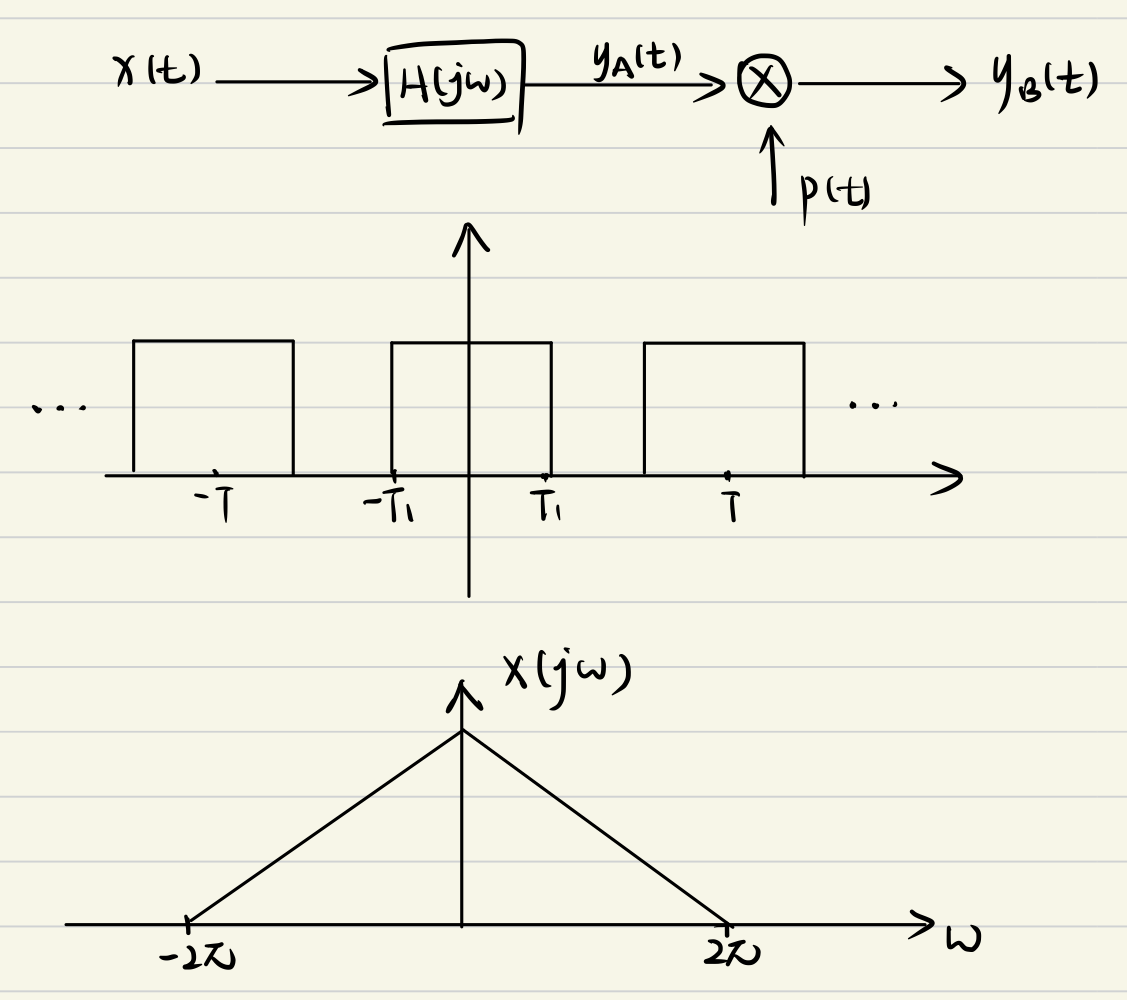 x(t) H(jω) y_A(t) X y_B(t)
p(t)
... ...
-T -T₁ T₁ T
X(jω)
-2π 2π ω